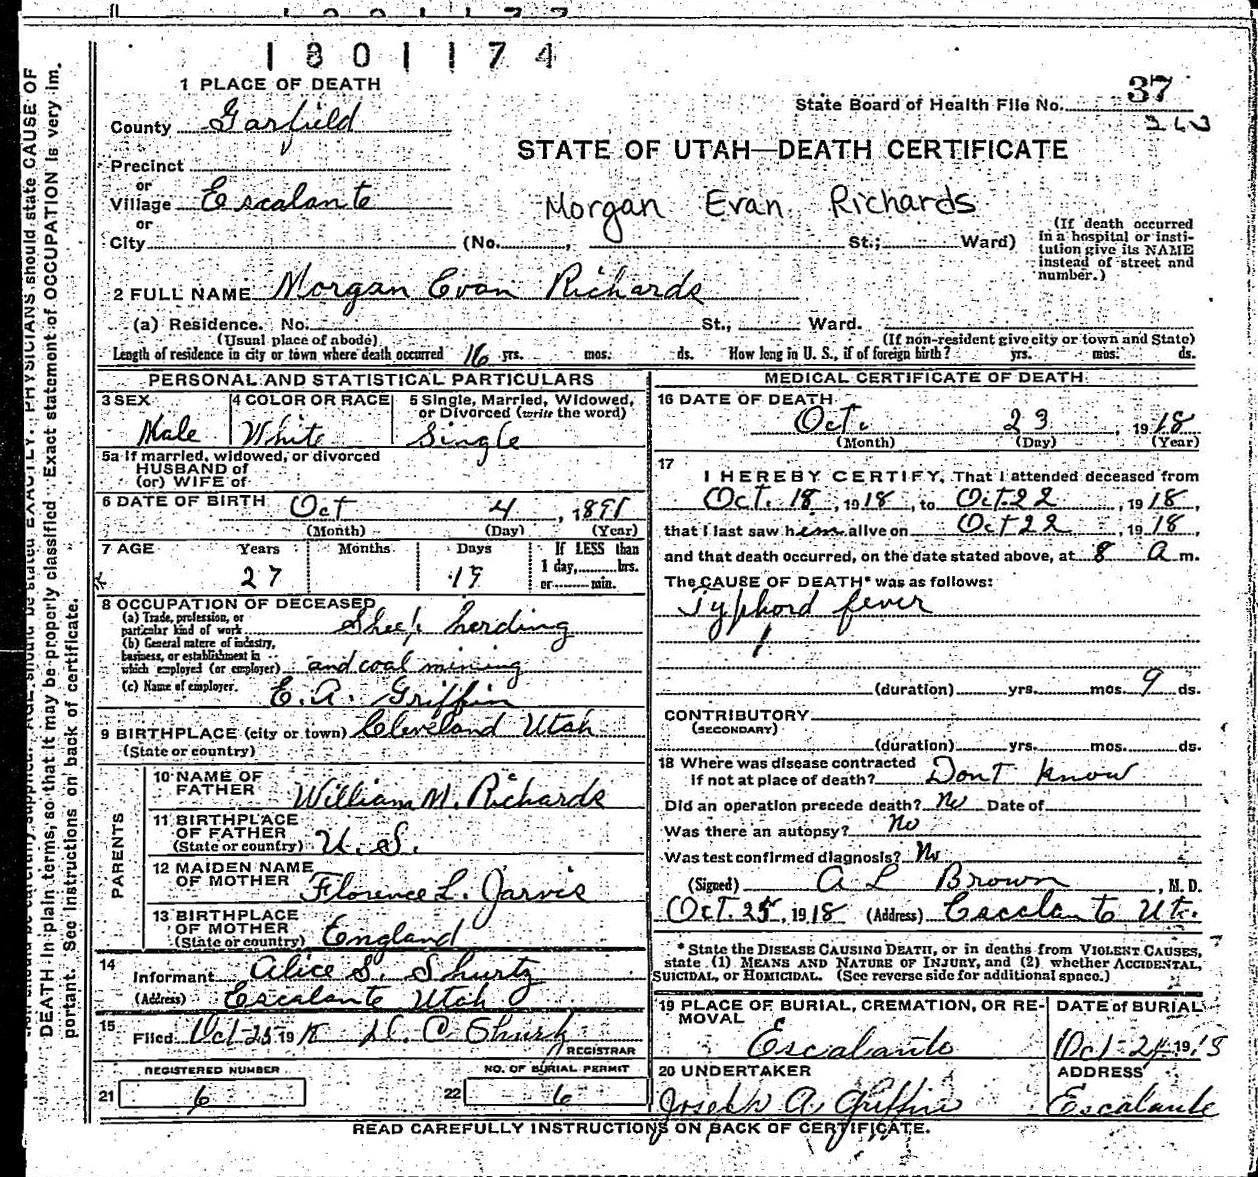 1801174
1 PLACE OF DEATH
37
State Board of Health File No.
County Garfield
STATE OF UTAH—DEATH CERTIFICATE
Precinct
or
Village Escalante
Morgan Evan Richards
or
City (No. , St.; Ward)
(If death occurred in a hospital or institution give its NAME instead of street and number.)
2 FULL NAME Morgan Evan Richards
(a) Residence. No. St., Ward.
(Usual place of abode) (If non-resident give city or town and State)
Length of residence in city or town where death occurred 16 yrs. mos. ds. How long in U. S., if of foreign birth? yrs. mos. ds.
PERSONAL AND STATISTICAL PARTICULARS
3 SEX 4 COLOR OR RACE 5 Single, Married, Widowed, or Divorced (write the word)
Male White Single
5a If married, widowed, or divorced
HUSBAND of
(or) WIFE of
6 DATE OF BIRTH Oct 4, 1891
(Month) (Day) (Year)
7 AGE Years Months Days If LESS than
1 day, hrs.
or min.
27 19
8 OCCUPATION OF DECEASED
(a) Trade, profession, or
particular kind of work Sheep herding
(b) General nature of industry,
business, or establishment in
which employed (or employer) and coal mining
(c) Name of employer. E. A. Griffin
9 BIRTHPLACE (city or town) Cleveland Utah
(State or country)
PARENTS
10 NAME OF
FATHER William M. Richards
11 BIRTHPLACE
OF FATHER
(State or country) U. S.
12 MAIDEN NAME
OF MOTHER Florence L. Jarvis
13 BIRTHPLACE
OF MOTHER
(State or country) England
14
Informant Alice S. Shurtz
(Address) Escalante Utah
15
Filed Oct-25-1918
REGISTRAR
REGISTERED NUMBER NO. OF BURIAL PERMIT
21 6 22 6
MEDICAL CERTIFICATE OF DEATH
16 DATE OF DEATH
Oct. 23, 1918
(Month) (Day) (Year)
17
I HEREBY CERTIFY, That I attended deceased from
Oct. 18, 1918, to Oct 22, 1918,
that I last saw him alive on Oct 22, 1918,
and that death occurred, on the date stated above, at 8 a m.
The CAUSE OF DEATH* was as follows:
Typhord fever
(duration) yrs. mos. 9 ds.
CONTRIBUTORY
(SECONDARY)
(duration) yrs. mos. ds.
18 Where was disease contracted
if not at place of death? Dont know
Did an operation precede death? No Date of
Was there an autopsy? No
Was test confirmed diagnosis? No
(Signed) A L Brown, M. D.
Oct. 25, 1918 (Address) Escalante Ut.
* State the DISEASE CAUSING DEATH, or in deaths from VIOLENT CAUSES,
state (1) MEANS AND NATURE OF INJURY, and (2) whether ACCIDENTAL,
SUICIDAL, or HOMICIDAL. (See reverse side for additional space.)
19 PLACE OF BURIAL, CREMATION, OR REMOVAL DATE of BURIAL
Escalante Oct-24-1918
20 UNDERTAKER ADDRESS
Joseph A Griffin Escalante
READ CAREFULLY INSTRUCTIONS ON BACK OF CERTIFICATE.
PHYSICIANS should state CAUSE OF
DEATH in plain terms, so that it may be properly classified. Exact statement of OCCUPATION is very im-
portant. See instructions on back of certificate.